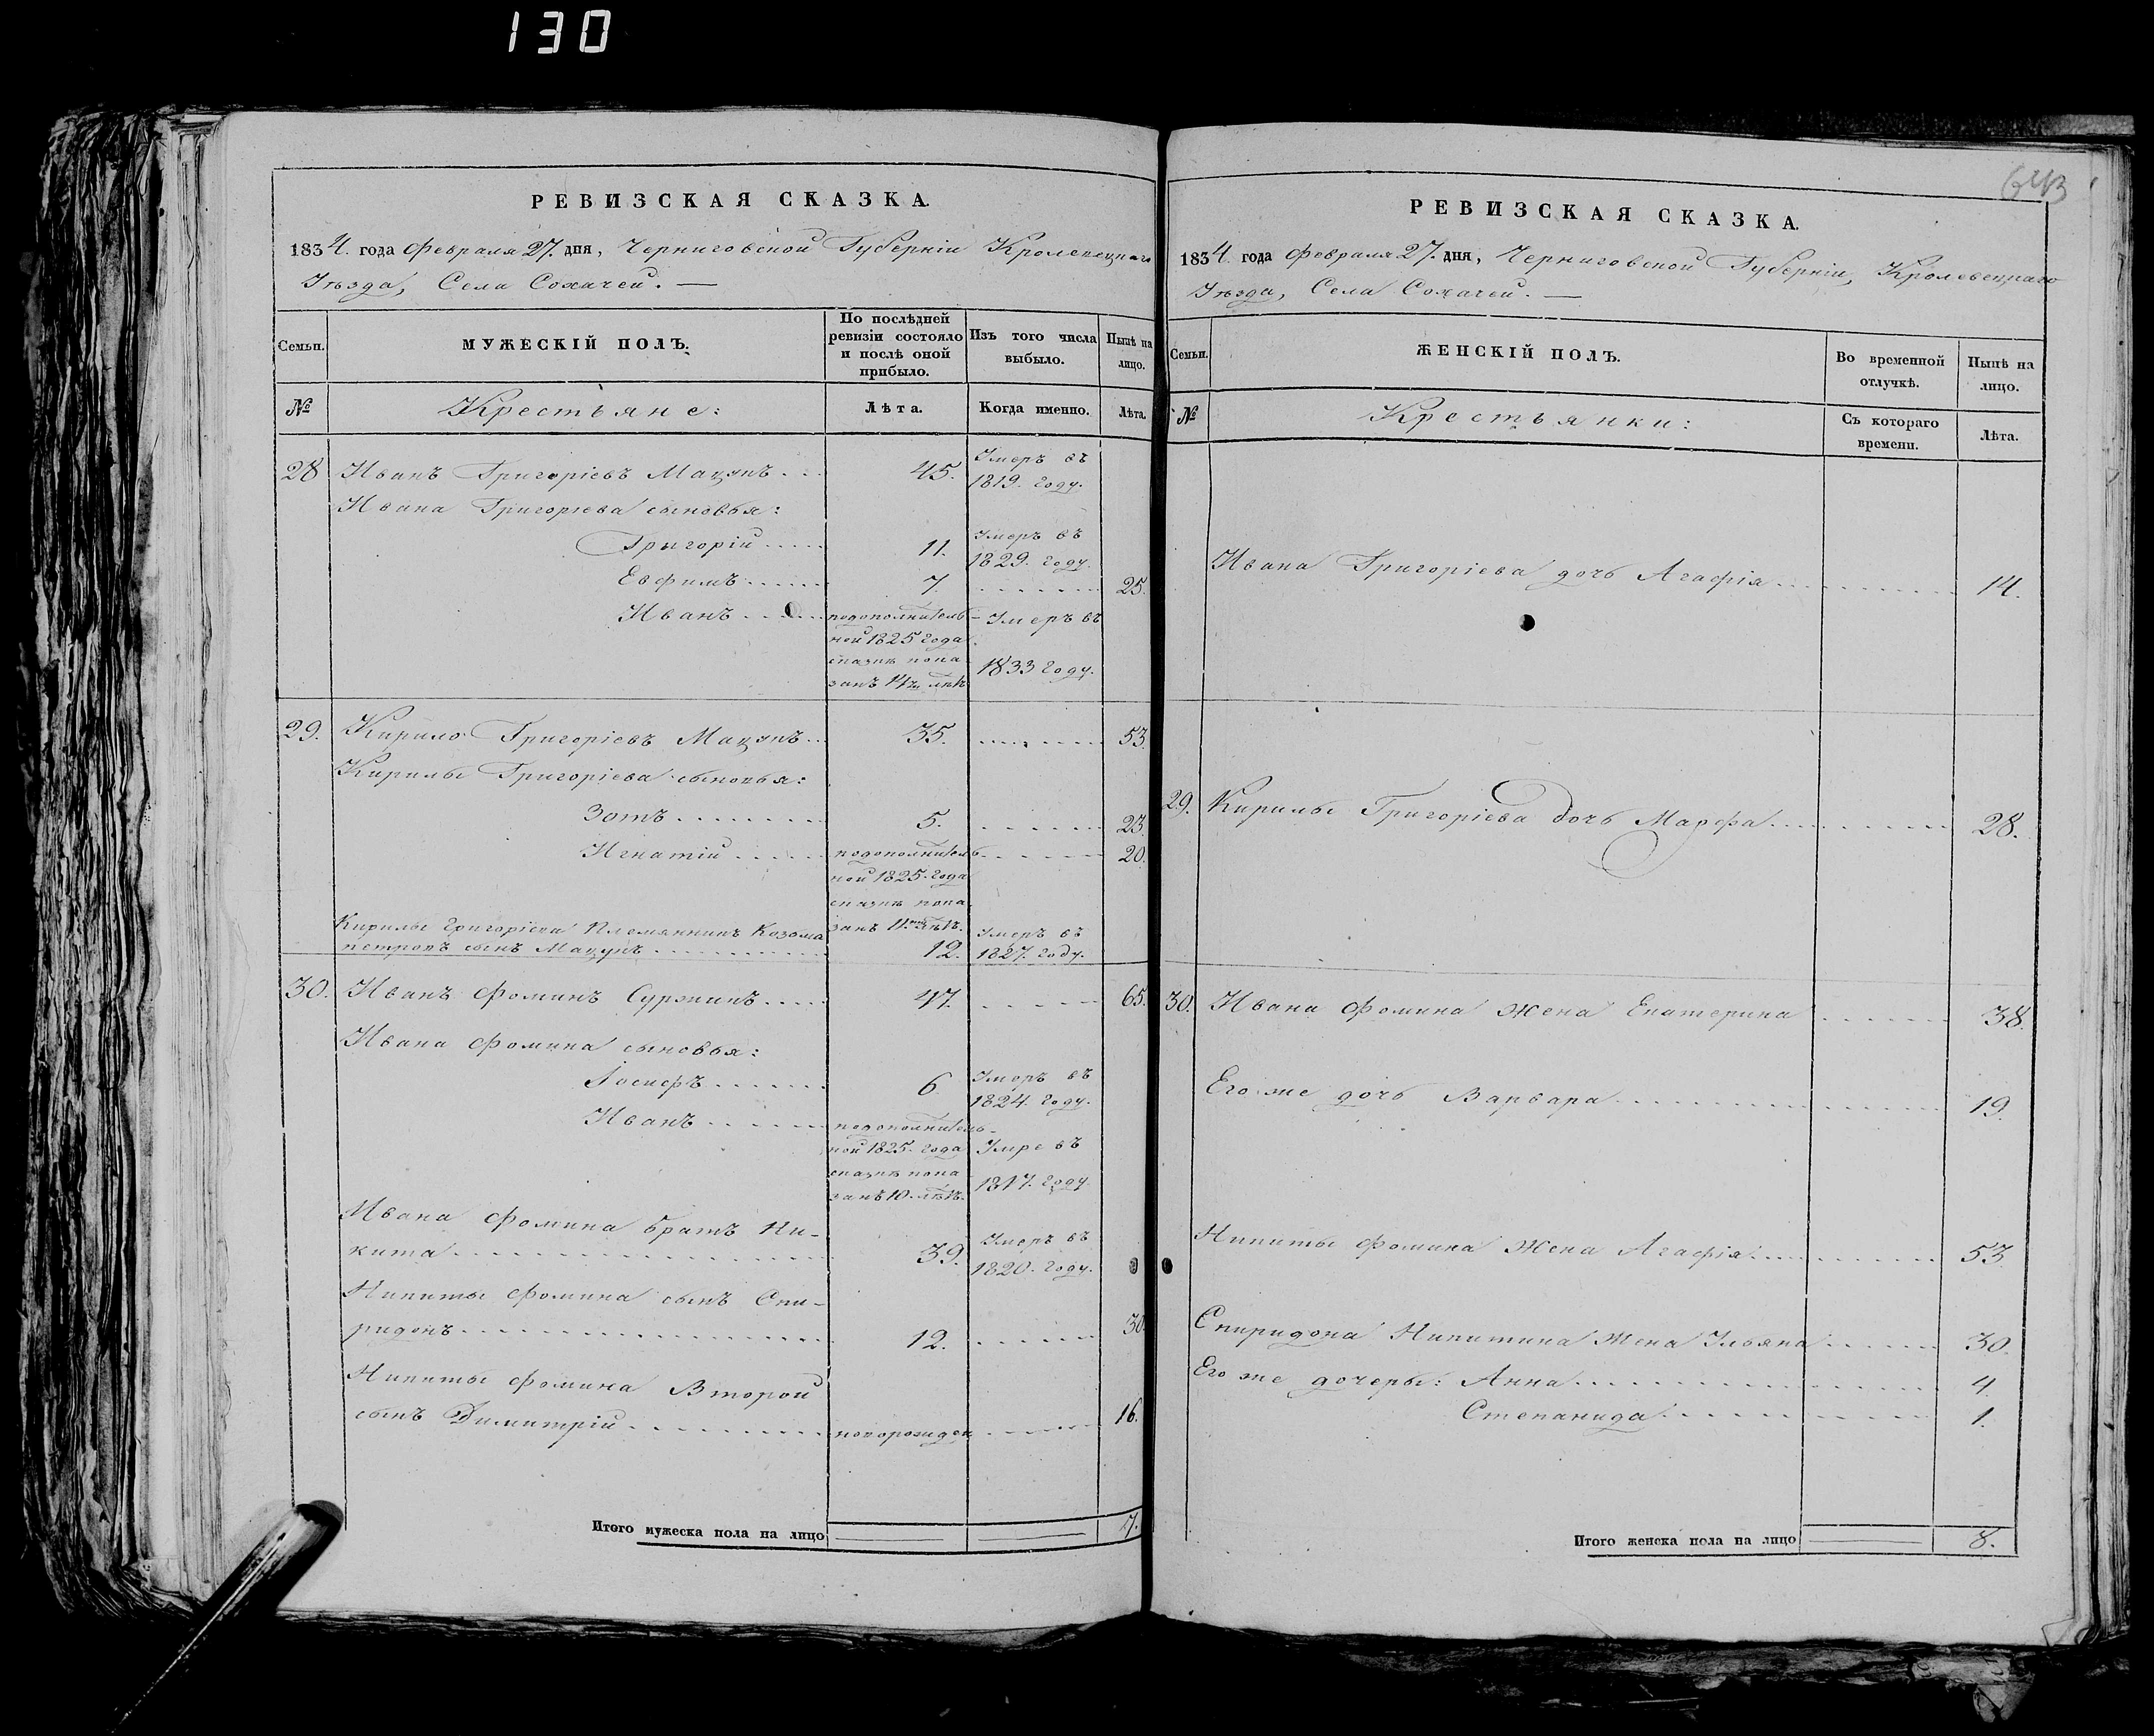 130
РЕВИЗСКАЯ СКАЗКА.
1834. года Февраля 27. дня, Черниговской Губерніи Кролевецкаго
Уѣзда, Села Сохачей. —
Семьи.
МУЖЕСКІЙ ПОЛЪ.
По послѣдней
ревизіи состояло
и послѣ оной
прибыло.
Изъ того числа
выбыло.
Нынѣ на
лицо.
№
Крестьяне:
Лѣта.
Когда именно.
Лѣта.
28 Иванъ Григоріевъ Мацукъ... 45. Умеръ въ
1819. году.
Ивана Григоріева сыновья:
Григорій..... 11. Умеръ въ
1829. году.
Евфимъ...... 7. ........ 25.
Иванъ...... подополнитель- Умеръ въ
ной 1825 года
сказкѣ пока
1833 году.
занъ 14ти лѣтъ
29. Кирило Григоріевъ Мацукъ.. 35. ........ 53.
Кирилы Григоріева сыновья:
Зотъ......... 5. ....... 23.
Игнатій...... подополнитель....... 20.
ной 1825. года
сказкѣ пока
занъ 11. лѣтъ.
Кирилы Григоріева Племянникъ Козьма
петровъ сынъ Мацукъ........... 12. Умеръ въ
1827. году.
30. Иванъ Фоминъ Суржикъ..... 47. ...... 65.
Ивана Фомина сыновья:
Іосифъ....... 6 Умеръ въ
1824. году.
Иванъ....... подополнитель-
ной 1825. года Умре въ
сказкѣ пока
занъ 10. лѣтъ. 18 7. году
Ивана Фомина братъ Ни-
кита.................. 39. Умеръ въ
1820. году.
Никиты Фомина сынъ Спи-
ридонъ.................. 12. ...... 30.
Никиты Фомина Второй
сынъ Димитрій........... новорожден ...... 16.
Итого мужеска пола на лицо 7.
643
РЕВИЗСКАЯ СКАЗКА.
1834. года Февраля 27. дня, Черниговской Губерніи, Кролевецкаго
Уѣзда, Села Сохачей. —
Семьи.
ЖЕНСКІЙ ПОЛЪ.
Во временной
отлучкѣ.
Нынѣ на
лицо.
№
Крестьянки:
Съ котораго
времени.
Лѣта.
Ивана Григоріева дочь Агафія............ 14.
29. Кирилы Григоріева дочь Марфа........... 28.
30. Ивана Фомина Жена Екатерина ....... 38.
Его же дочь Варвара................... 19.
Никиты Фомина Жена Агафія.............. 53.
Спиридона Никитина Жена Ульяна........ 30.
Его же дочеры: Анна.................. 4.
Степанида............... 1.
Итого женска пола на лицо 8.